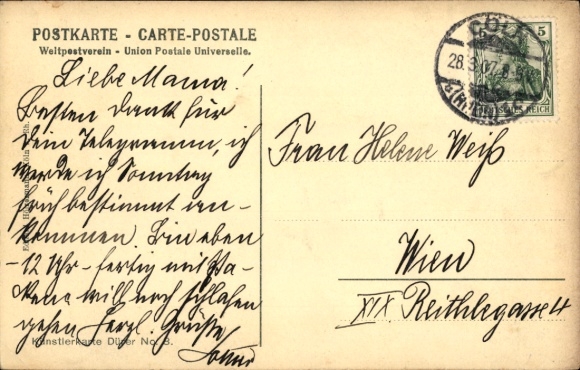 POSTKARTE - CARTE-POSTALE
Weltpostverein - Union Postale Universelle.
Liebe Mama!
Besten Dank für
Dein Telegramm, ich
werde ich Sonntag
früh bestimmt an-
kommen. Bin eben
-12 Uhr- fertig mit Pa-
cken, will noch schlafen
gehen Herzl. Grüsse
Künstlerkarte Dürer No. 3.
CÖLN
28.3.07
5
DEUTSCHES REICH
Frau Helene Weiß
Wien
XIX Reithlegasse 4